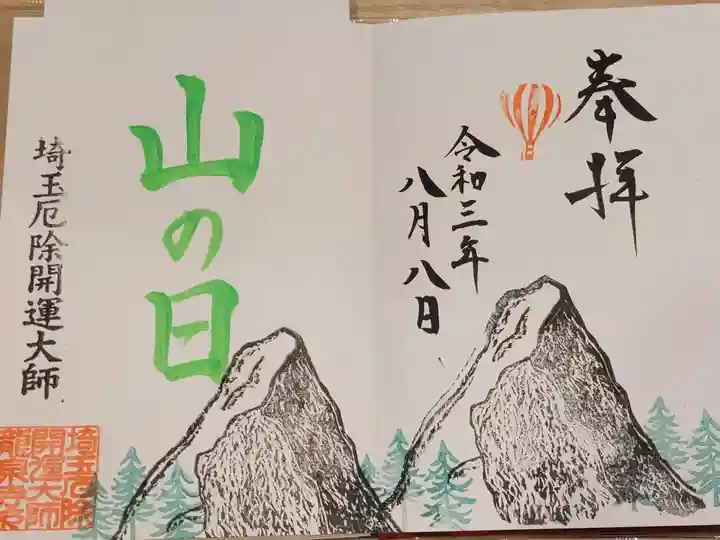 奉拝
令和三年
八月八日
山の日
埼玉厄除開運大師
埼玉厄除
開運大師
龍泉寺印